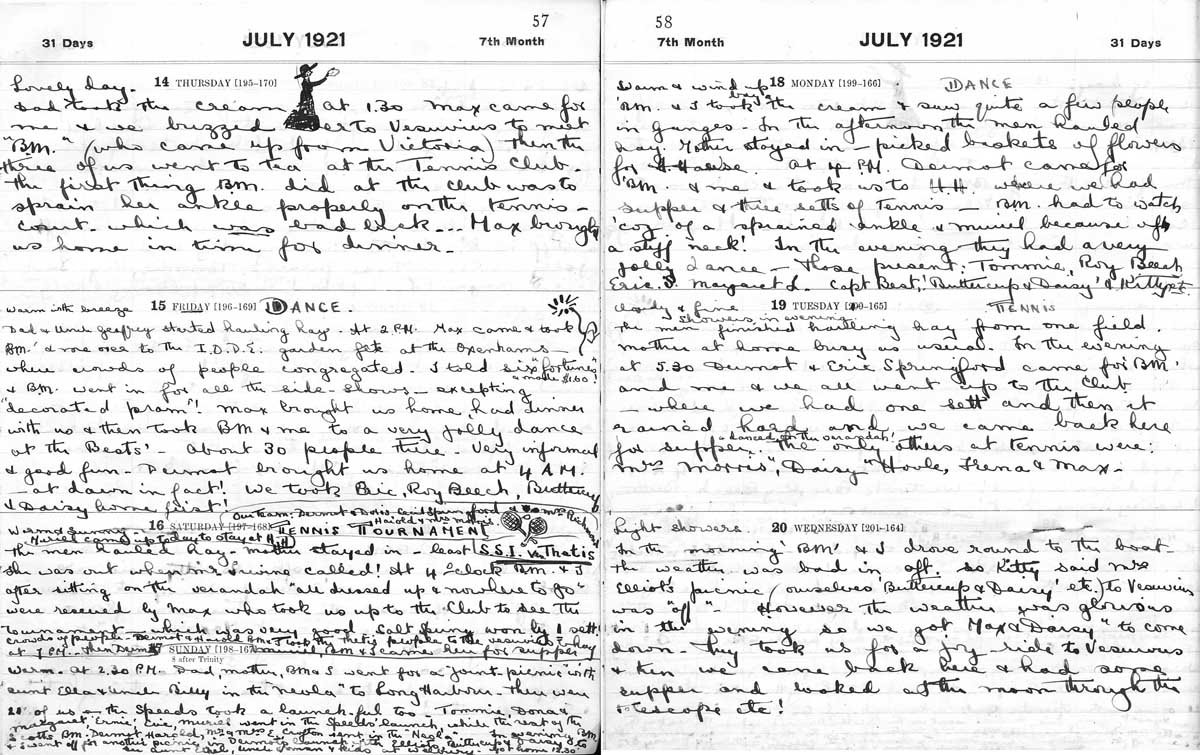 57
31 Days JULY 1921 7th Month
14 THURSDAY [195-170]
Lovely day.
Dad took the cream at 1.30 Max came for
me & we buzzed over to Vesuvius to meet
"BM." (who came up from Victoria) then the
three of us went to tea at the Tennis Club.
The first thing BM. did at the club was to
sprain her ankle properly on the tennis-
court which was bad luck... Max brought
us home in time for dinner.
15 FRIDAY [196-169] DANCE.
Warm with breeze
Dad & Uncle Geoffrey started hauling hay. At 2 P.M. Max came & took
BM. & me over to the I.O.D.E. garden fete at the Oxenhams
where crowds of people congregated. I told six "fortunes"
& made $1.60!
& BM. went in for all the side shows - excepting
"decorated pram"! Max brought us home, had dinner
with us & then took BM & me to a very jolly dance
at the Bests' - About 30 people there. Very informal
& good fun - Dermot brought us home at 4 A.M.
- at dawn in fact! We took Eric, Roy Beech, Buttercup
& Daisy home first!
16 SATURDAY [197-168] TENNIS TOURNAMENT
Our team: Dermot & Doris, Cecil Springford & Mrs
Harold & Mrs Morris
S.S.I. vs. Thetis
Warm & sunny
Muriel came up today to stay at H.H.
The men hauled hay - mother stayed in - least
she was out when Mrs called! At 4 o'clock B.M. & I
after sitting on the verandah "all dressed up & nowhere to go"
were rescued by Max who took us up to the Club to see the
tournament - which was very good. Salt Spring won by 1 sett
crowds of people - Dermot & Harold took the Thetis people to Vesuvius
at 7 P.M. then Dermot Muriel BM & I came here for supper
17 SUNDAY [198-167]
8 after Trinity
Warm. At 2.30 P.M. Dad, mother, BM & I went for a "joint-picnic" with
Aunt Ella & Uncle Billy in the to Long Harbour - there were
28 of us - the Speeds took a launch-ful too - Tommie, Dona &
Margaret, Ernie, Eric, Muriel went in the Speeds' launch, while the rest of the
BM. Dermot, Harold, Mr & Mrs E. Crofton went in the In evening BM
went off for another picnic in Dermot's launch Buttercup & Daisy to
home 12.30
58
7th Month JULY 1921 31 Days
18 MONDAY [199-166] DANCE
Warm & wind up
'BM. & I took the cream & saw quite a few people
in Ganges. In the afternoon the men hauled
hay. Mother stayed in - picked baskets of flowers
for At 4 P.M. Dermot came for
'BM. & me & took us to H.H. where we had
supper & three setts of Tennis - BM. had to watch
'coz of a sprained ankle & Muriel because of
a stiff neck! In the evening they had a very
jolly dance - Those present: Tommie, Roy Beech
Eric. S. Margaret d. Capt Best, 'Buttercup & Daisy' & Kitty etc.
19 TUESDAY [200-165] TENNIS
Cloudy & fine
showers in evening
The men finished hauling hay from one field.
Mother at home busy as usual. In the evening
at 5.30 Dermot & Eric Springford came for 'BM'
and me & we all went up to the Club
- where we had one sett and then it
rained hard and we came back here
for supper & danced on the verandah! The only others at tennis were:
Mrs Morris, Daisy Hoole, Irena & Max -
20 WEDNESDAY [201-164]
Light showers.
In the morning 'BM' & I drove round to the boat
The weather was bad in aft. so Kitty said Mrs
Elliot's picnic (ourselves 'Buttercup & Daisy' etc.) to Vesuvius
was "off" - However the weather was glorious
in the evening so we got Max & Daisy to come
down - They took us for a joy-ride to Vesuvius
& then we came back here & had some
supper and looked at the moon through the
telescope etc!